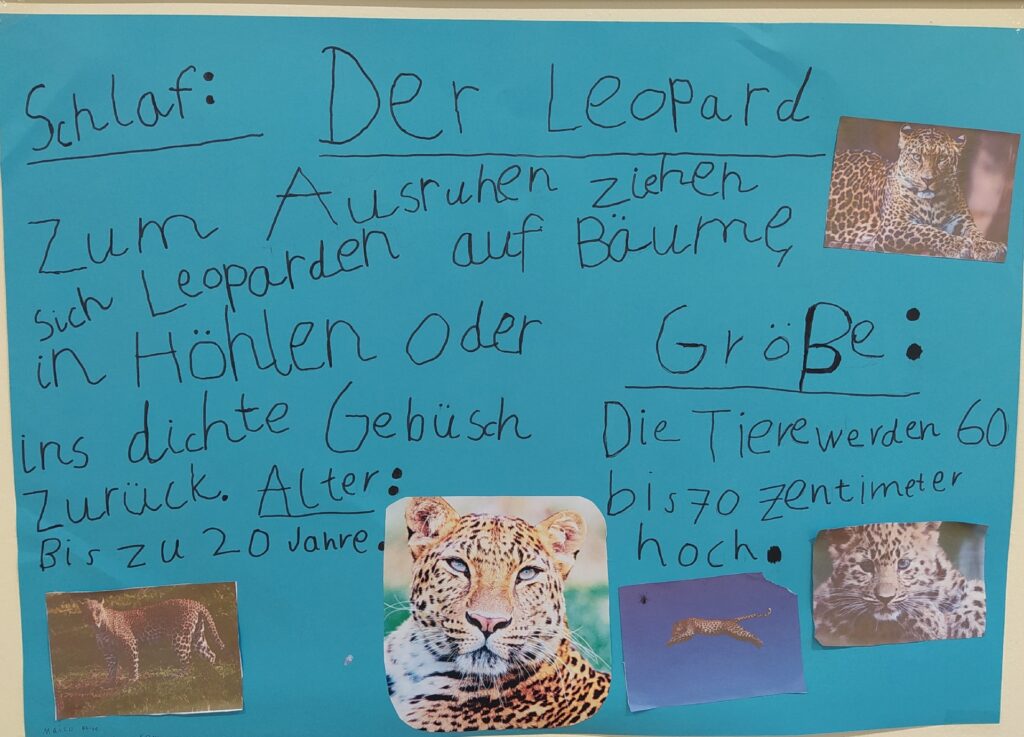 Der Leopard
Schlaf:
Zum Ausruhen ziehen
sich Leoparden auf Bäume,
in Höhlen oder
ins dichte Gebüsch
Zurück.
Alter:
Bis zu 20 Jahre.
Größe:
Die Tiere werden 60
bis 70 Zentimeter
hoch.